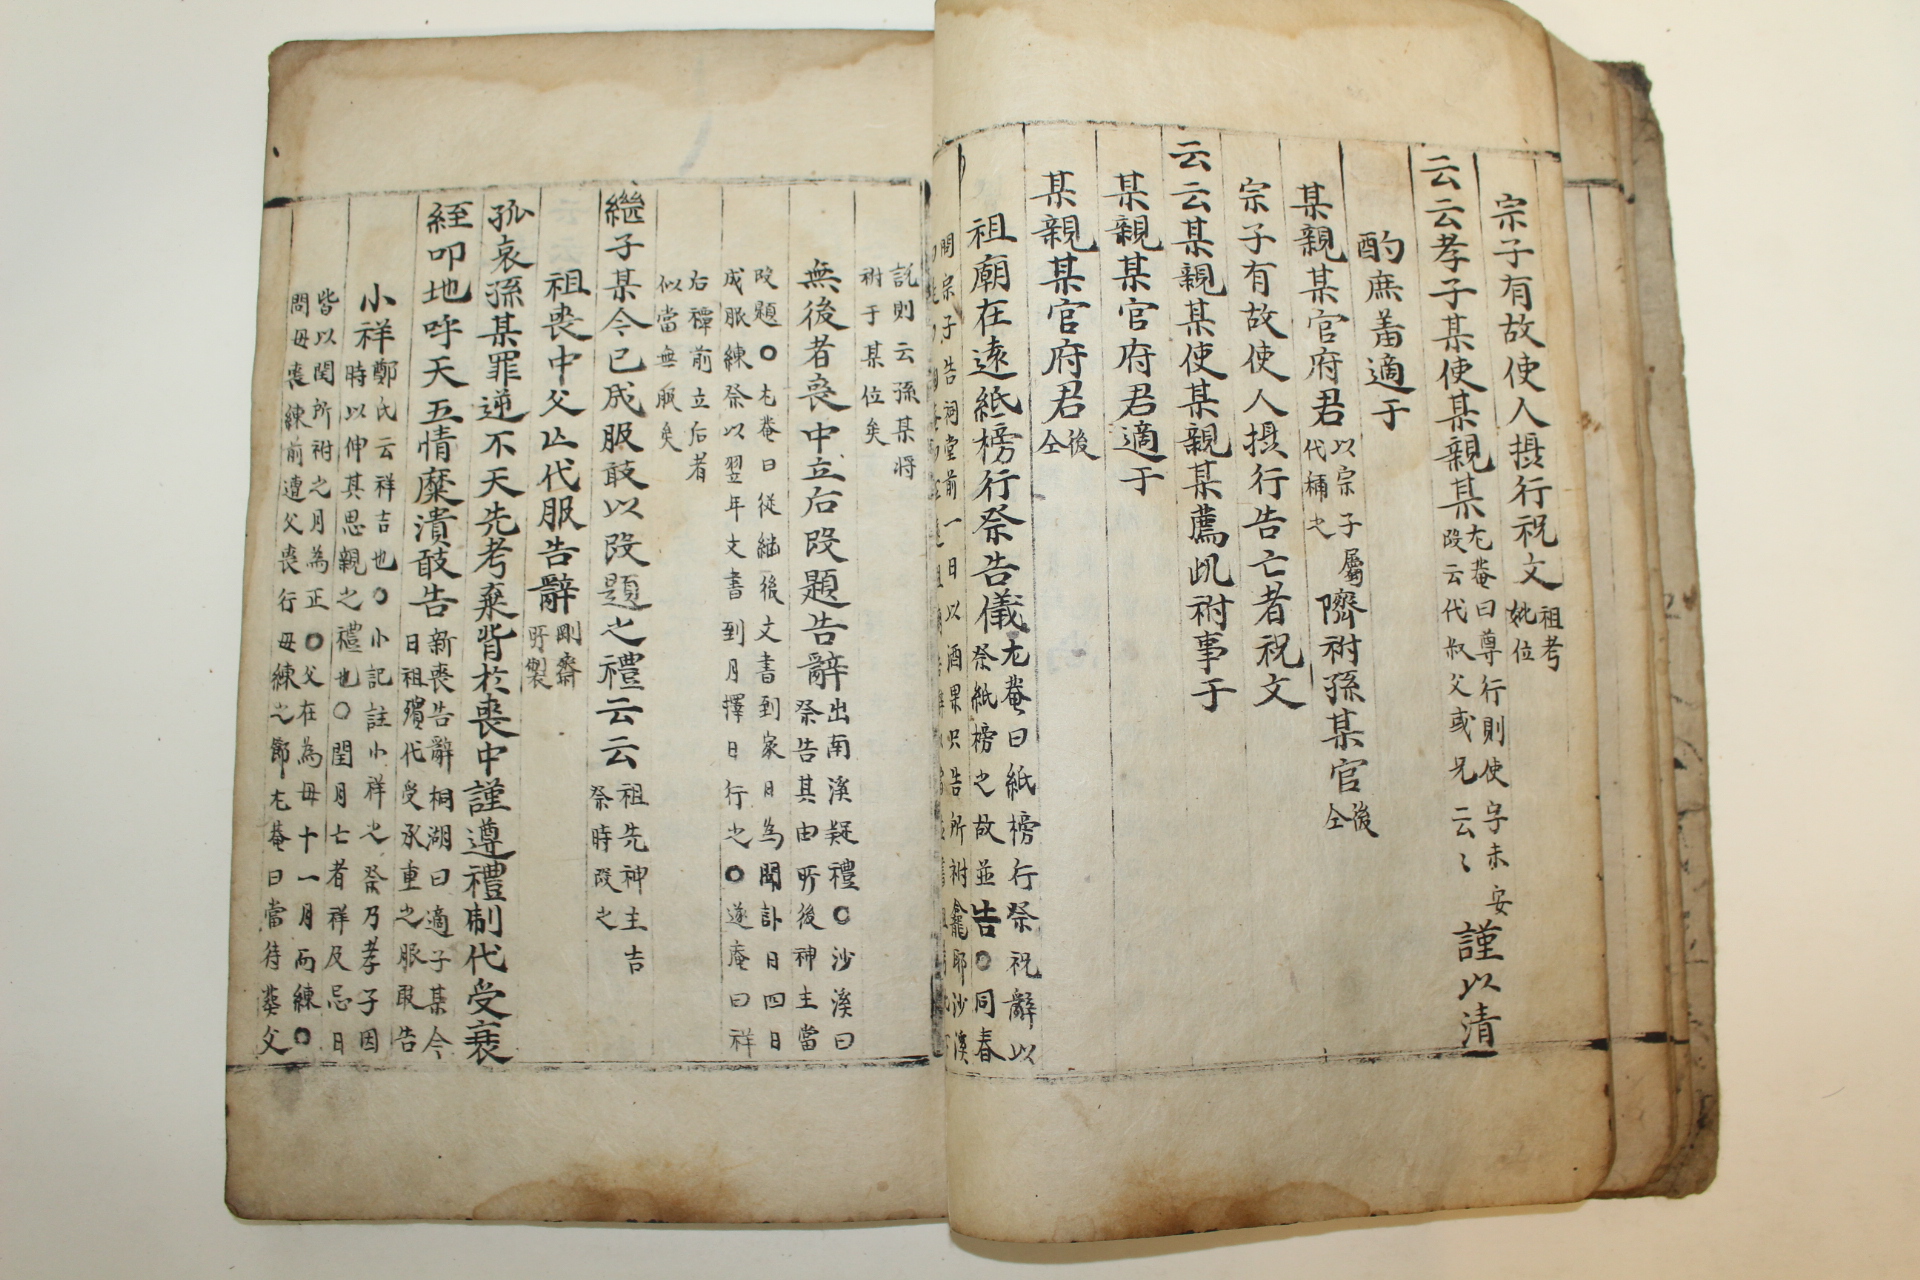 宗子有故使人攝行祝文祖考妣位
云云孝子某使某親某尤菴曰尊行則使字未安改云代叔父或兄云〻謹以清
酌庶羞適于
某親某官府君以宗子屬代稱之隮祔孫某官後仝
宗子有故使人攝行告亡者祝文
云云某親某使某親某薦此祔事于
某親某官府君適于
某親某官府君後仝
祖廟在遠紙榜行祭告儀尤菴曰紙榜行祭祝辭以祭紙榜之故並告○同春
問宗子告祠堂前一日以酒果只告所祔龕耶沙溪
託則云孫某將祔于某位矣
無後者喪中立后改題告辭出南溪疑禮○沙溪曰祭告其由所後神主當
改題○尤菴曰從繼後文書到家日為聞訃日四日成服練祭以翌年文書到月擇日行之○遂庵曰祥
右禫前立后者似當無服矣
繼子某今已成服敢以改題之禮云云祖先神主吉祭時改之
祖喪中父亡代服告辭剛齋所製
孤哀孫某罪逆不天先考棄背於喪中謹遵禮制代受衰
絰叩地呼天五情糜潰敢告新喪告辭桐湖曰適子某今日祖殯代受承重之服敢告
小祥鄭氏云祥吉也○小記註小祥之祭乃孝子因時以伸其思親之禮也○閏月亡者祥及忌日
皆以閏所祔之月為正○父在為母十一月而練○問母喪練前遭父喪行母練之節尤菴曰當待葬父